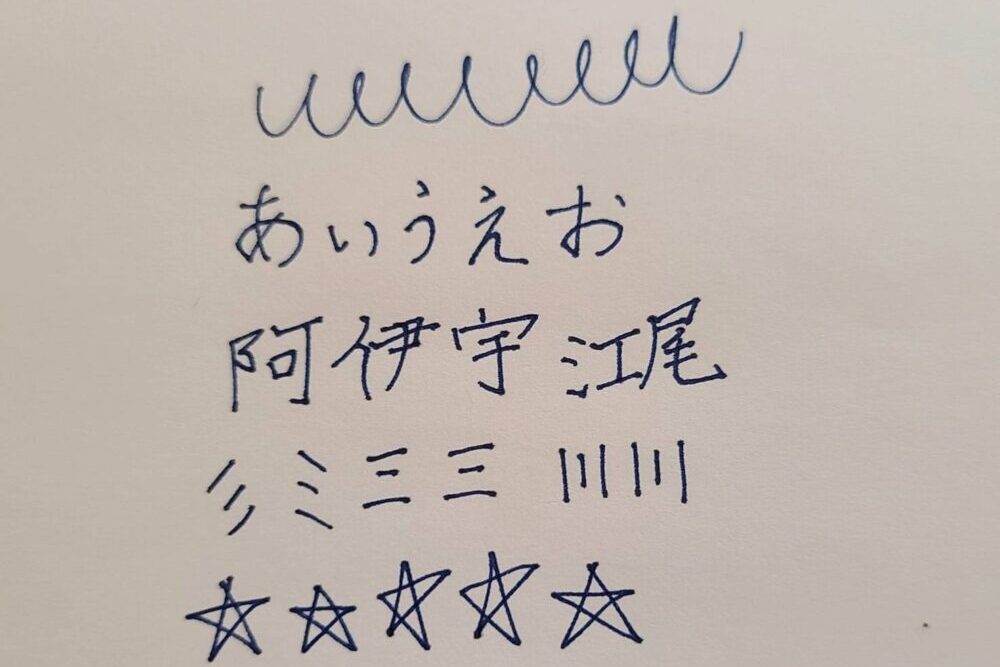 あいうえお
阿伊宇江尾
彡ミ三三川川
☆☆☆☆☆